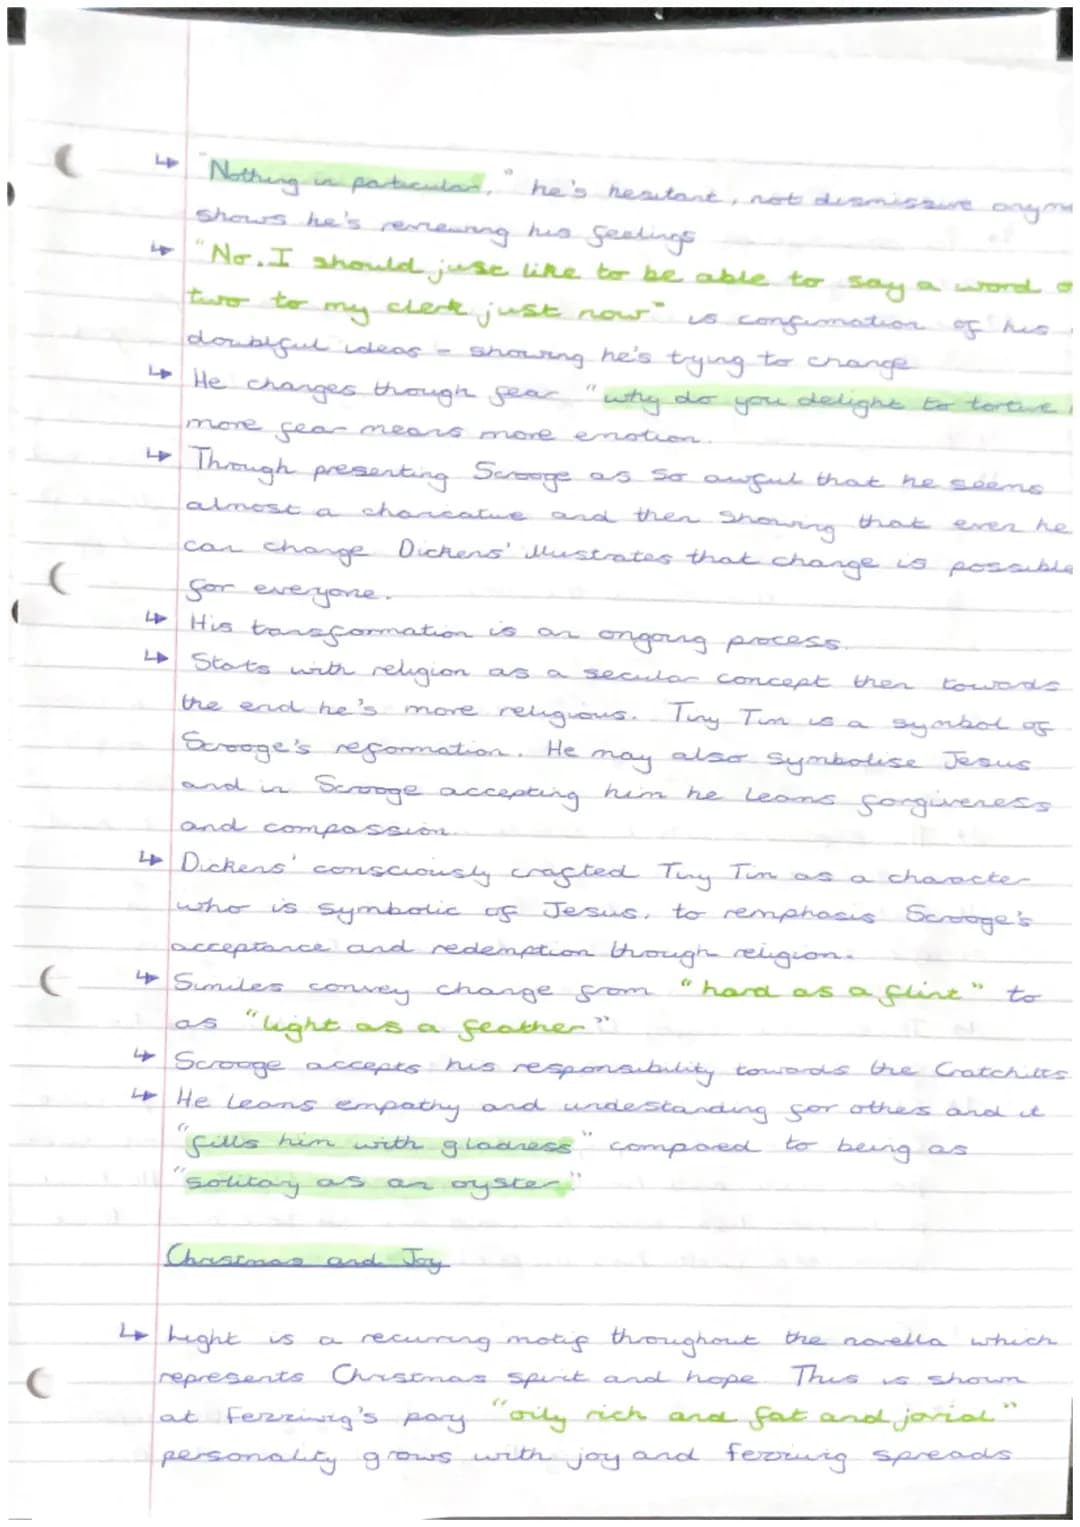 ↳ "Nothing in particular," he's hesitant, not dismissive
shows he's reviewing his feelings
↳ "No. I should just like to be able to say a word o
two to my clerk just now" is confirmation of his
doubtful ideas - showing he's trying to change
↳ He changes though fear "why do you delight to torture
more fear means more emotion.
↳ Through presenting Scrooge as so awful that he seems
almost a and then showing that even he
can change Dickens' illustrates that change is possible
for everyone.
↳ His transformation is an ongoing process.
↳ Starts with religion as a secular concept then towards
the end he's more religious. Tiny Tim is a symbol of
Scrooge's reformation. He may also symbolise Jesus
and in Scrooge accepting him he learns forgiveness
and compassion.
↳ Dickens' consciously crafted Tiny Tim as a character
who is symbolic of Jesus, to remphasis Scrooge's
acceptance and redemption through religion.
↳ Similes convey change from "hard as a flint" to
as "light as a feather"
↳ Scrooge accepts his responsibility towards the Cratchitts
↳ He learns empathy and understanding for others and it
"fills him with gladness" compared to being as
"solitary as an oyster"
Christmas and Joy
↳ Light is a recurring motif throughout the novella which
represents Christmas spirit and hope This is shown
at Fezziwig's pary "oily rich and fat and jovial"
personality grows with joy and fezziwig spreads